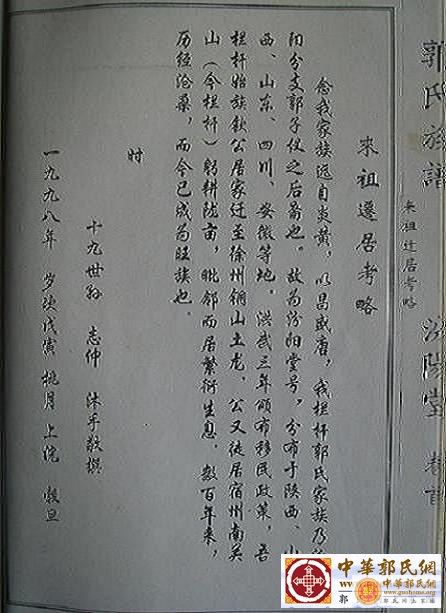 郭氏族譜 汾陽堂 卷首
来祖迁居考略
來祖遷居考略
念我家族远自炎黄，以昌盛唐，我栏杆郭氏家族乃汾
阳分支郭子仪之后裔也。故为汾阳堂号，分布于陕西、山
西、山东、四川、安徽等地。洪武三年颁布移民政策，吾
栏杆始族钦公居家迁至徐州铜山土龙，公又徒居宿州南关
山（今栏杆）躬耕陇亩，毗邻而居繁衍生息，数百年来，
历经沧桑，而今已成为旺族也。
时
十九世孙 志仲 沐手敬撰
一九九八年 岁次戊寅 桃月 上浣 穀旦
中華郭氏網
郭
中華郭氏網
www.guoshang.org